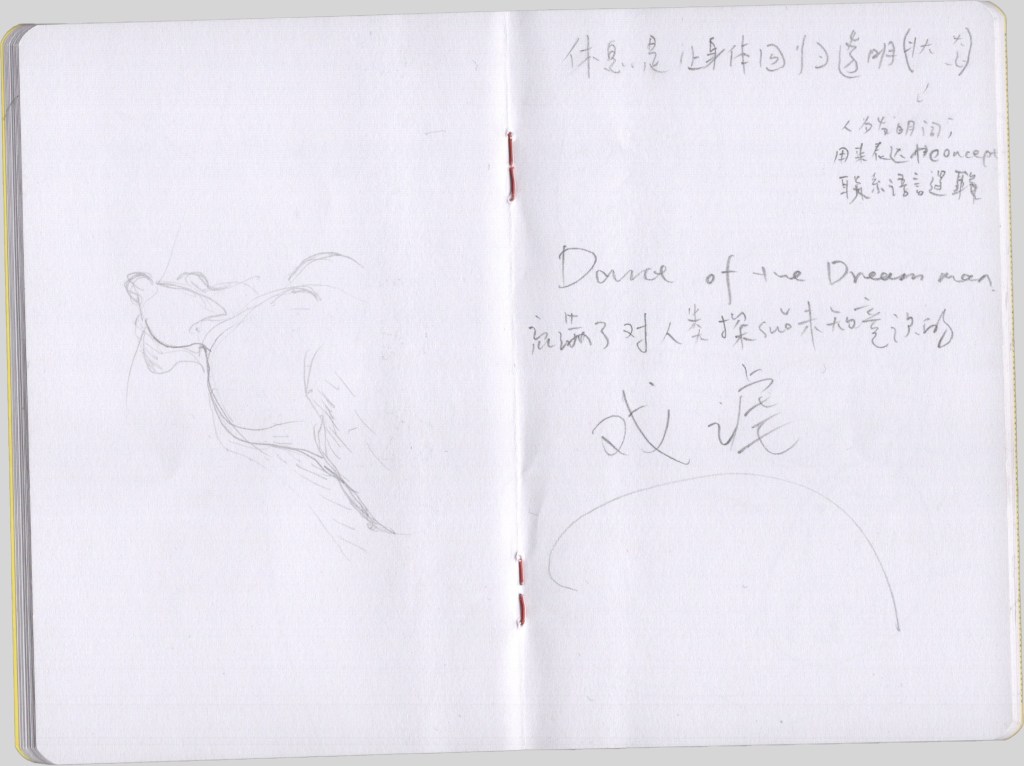 休息是让身体回归透明(状态)
人为发明词;
用来表达个concept
联系语言逻联
Dance of the Dream man
充满了对人类探知未知意识的
戏谑